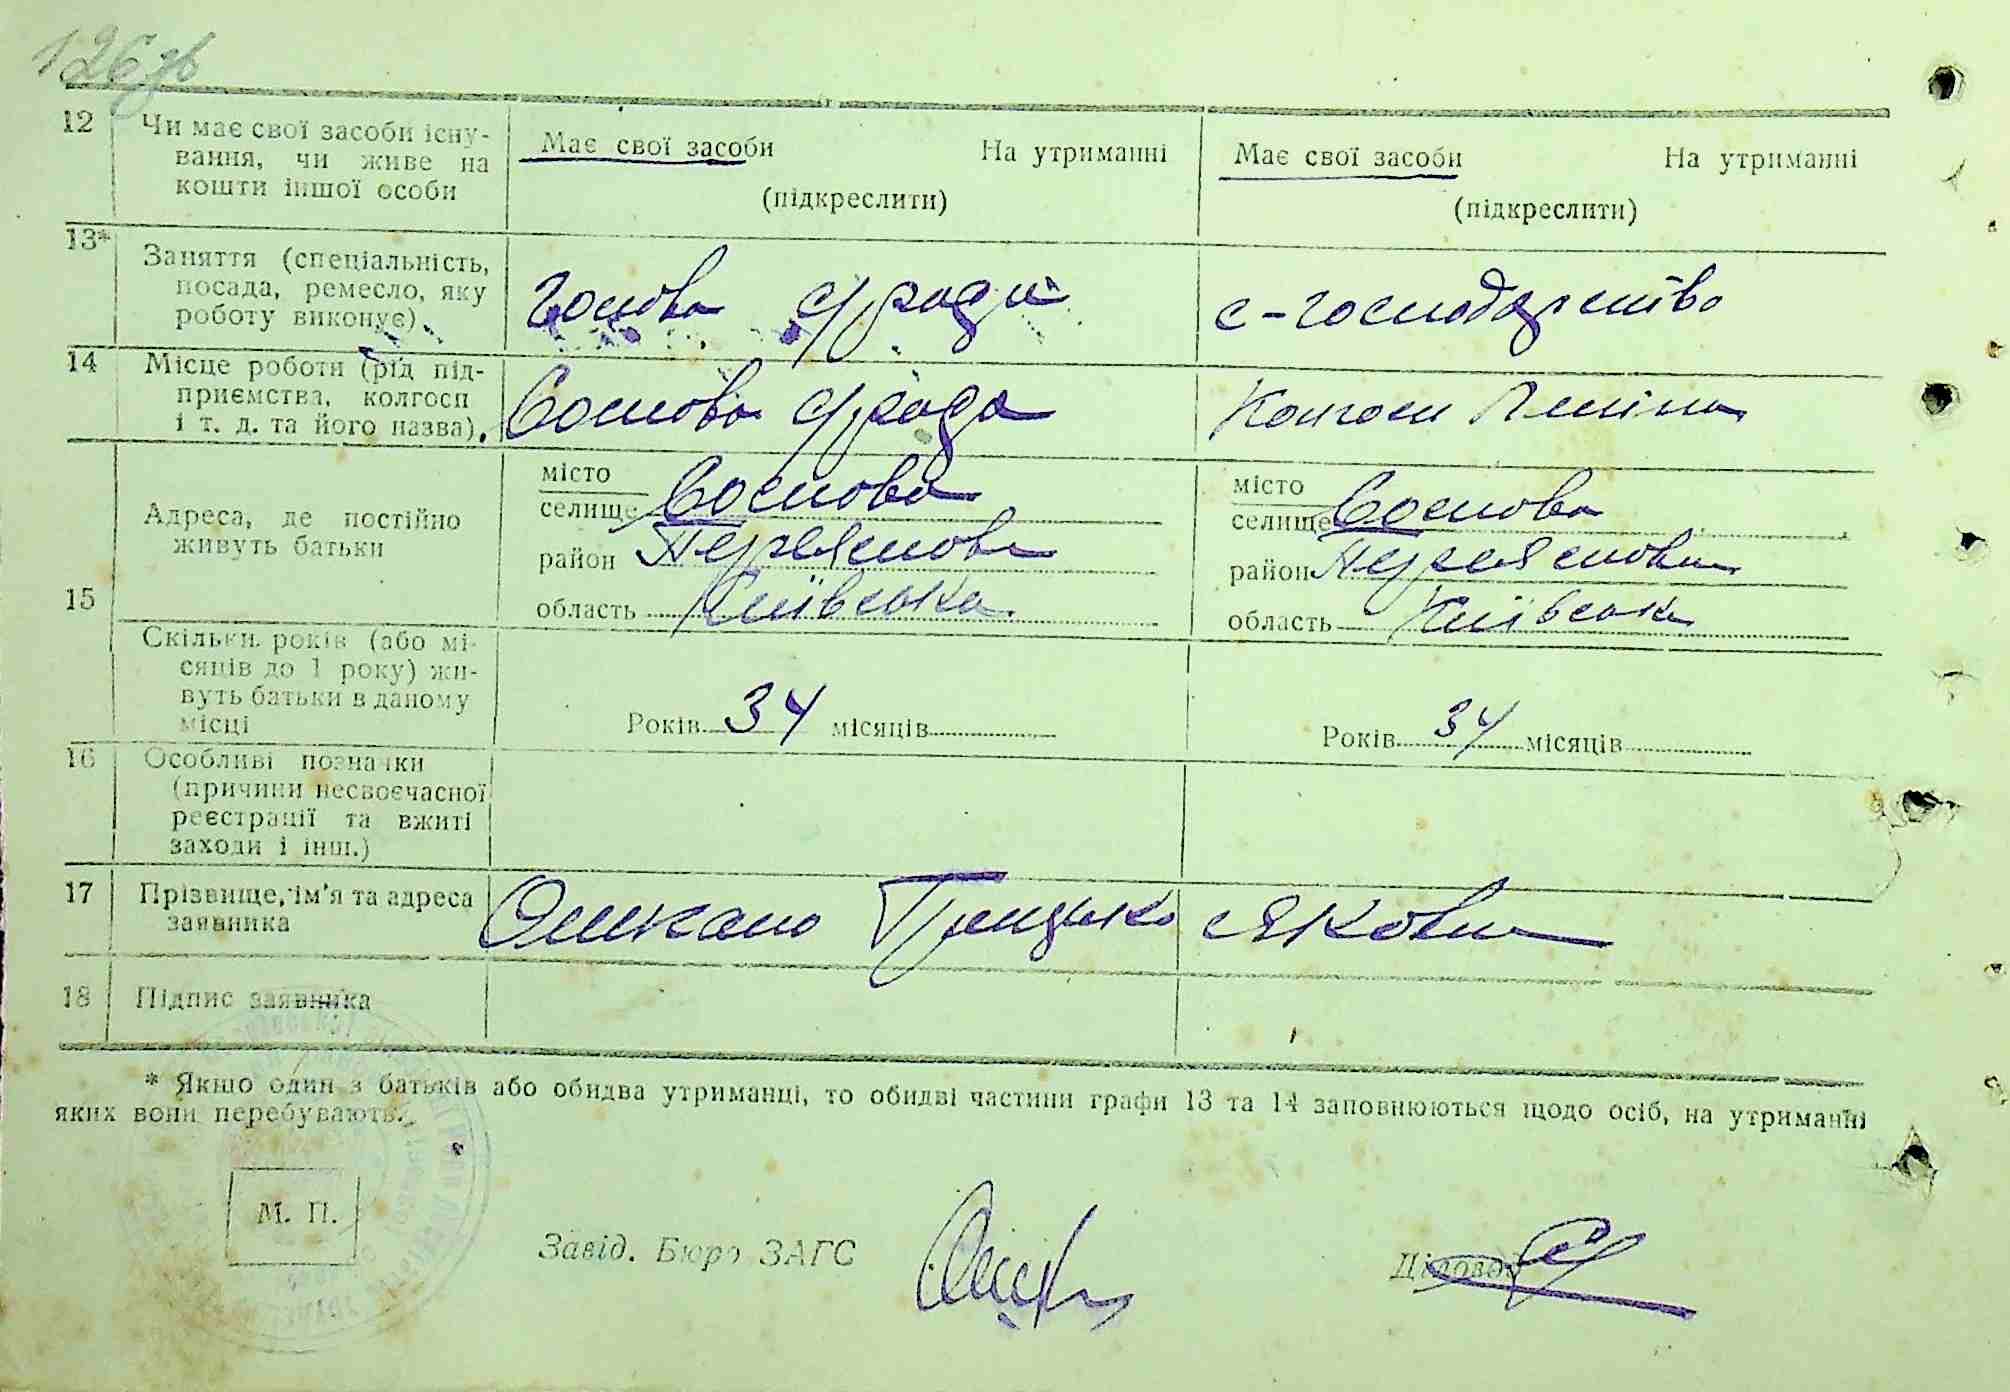 126зв
12 Чи має свої засоби існу-
вання, чи живе на
кошти іншої особи
Має свої засоби На утриманні
(підкреслити)
Має свої засоби На утриманні
(підкреслити)
13* Заняття (спеціальність,
посада, ремесло, яку
роботу виконує)
Голова с/ради
с-господарство
14 Місце роботи (рід під-
приємства, колгосп
і т. д. та його назва).
Соснова с/рада
Колгосп Леніна
15 Адреса, де постійно
живуть батьки
місто
селище Соснова
район Переяслове
область Київська
місто
селище Соснова
район
область Київська
Скільки років (або мі-
сяців до 1 року) жи-
вуть батьки в даному
місці
Років 34 місяців
Років 34 місяців
16 Особливі позначки
(причини несвоєчасної
реєстрації та вжиті
заходи і інш.)
17 Прізвище, ім'я та адреса
заявника
Якович
18 Підпис заявника
* Якщо один з батьків або обидва утриманці, то обидві частини графи 13 та 14 заповнюються щодо осіб, на утриманні
яких вони перебувають.
М. П.
Завід. Бюро ЗАГС
Діловод